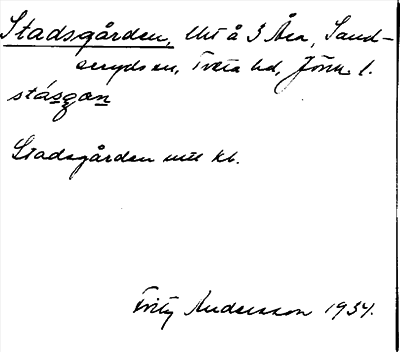 Stadsgården, Uts å 3 Åsa, Sand-
seryds sn, Tveta hd, Jönk. l.
stásgan
Stadsgården utt kb.
Fritz Andersson 1934.